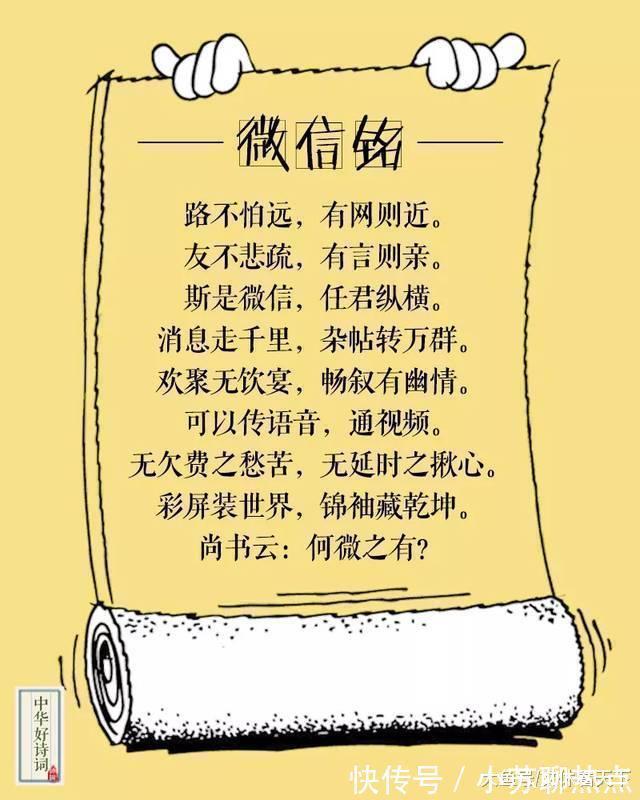 微信铭
路不怕远，有网则近。
友不悲疏，有言则亲。
斯是微信，任君纵横。
消息走千里，杂帖转万群。
欢聚无饮宴，畅叙有幽情。
可以传语音，通视频。
无欠费之愁苦，无延时之揪心。
彩屏装世界，锦袖藏乾坤。
尚书云：何微之有？
中华好诗词
快传号／小苏聊热点